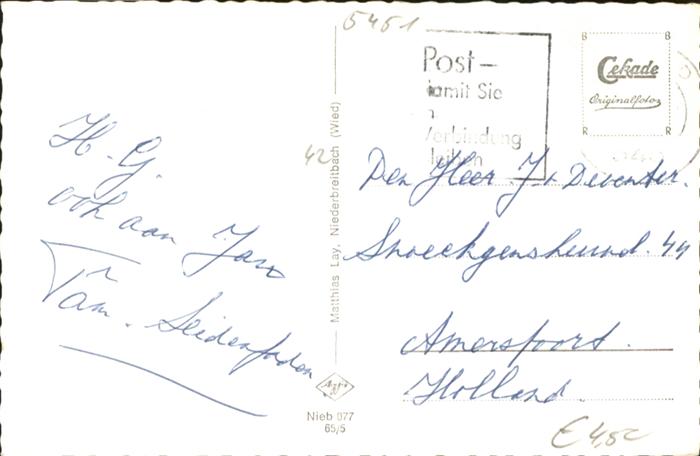 5451
Post-
damit Sie
in
Verbindung
bleiben
B B
Cekade
Originalfotos
R R
42
H. G.
ook aan Jan
Fam. Seidenfaden
Matthias Lay, Niederbreitbach (Wied)
Den Heer J. v Deventer.
44
Amersfoort.
Holland.
Agfa
Nieb 077
65/5